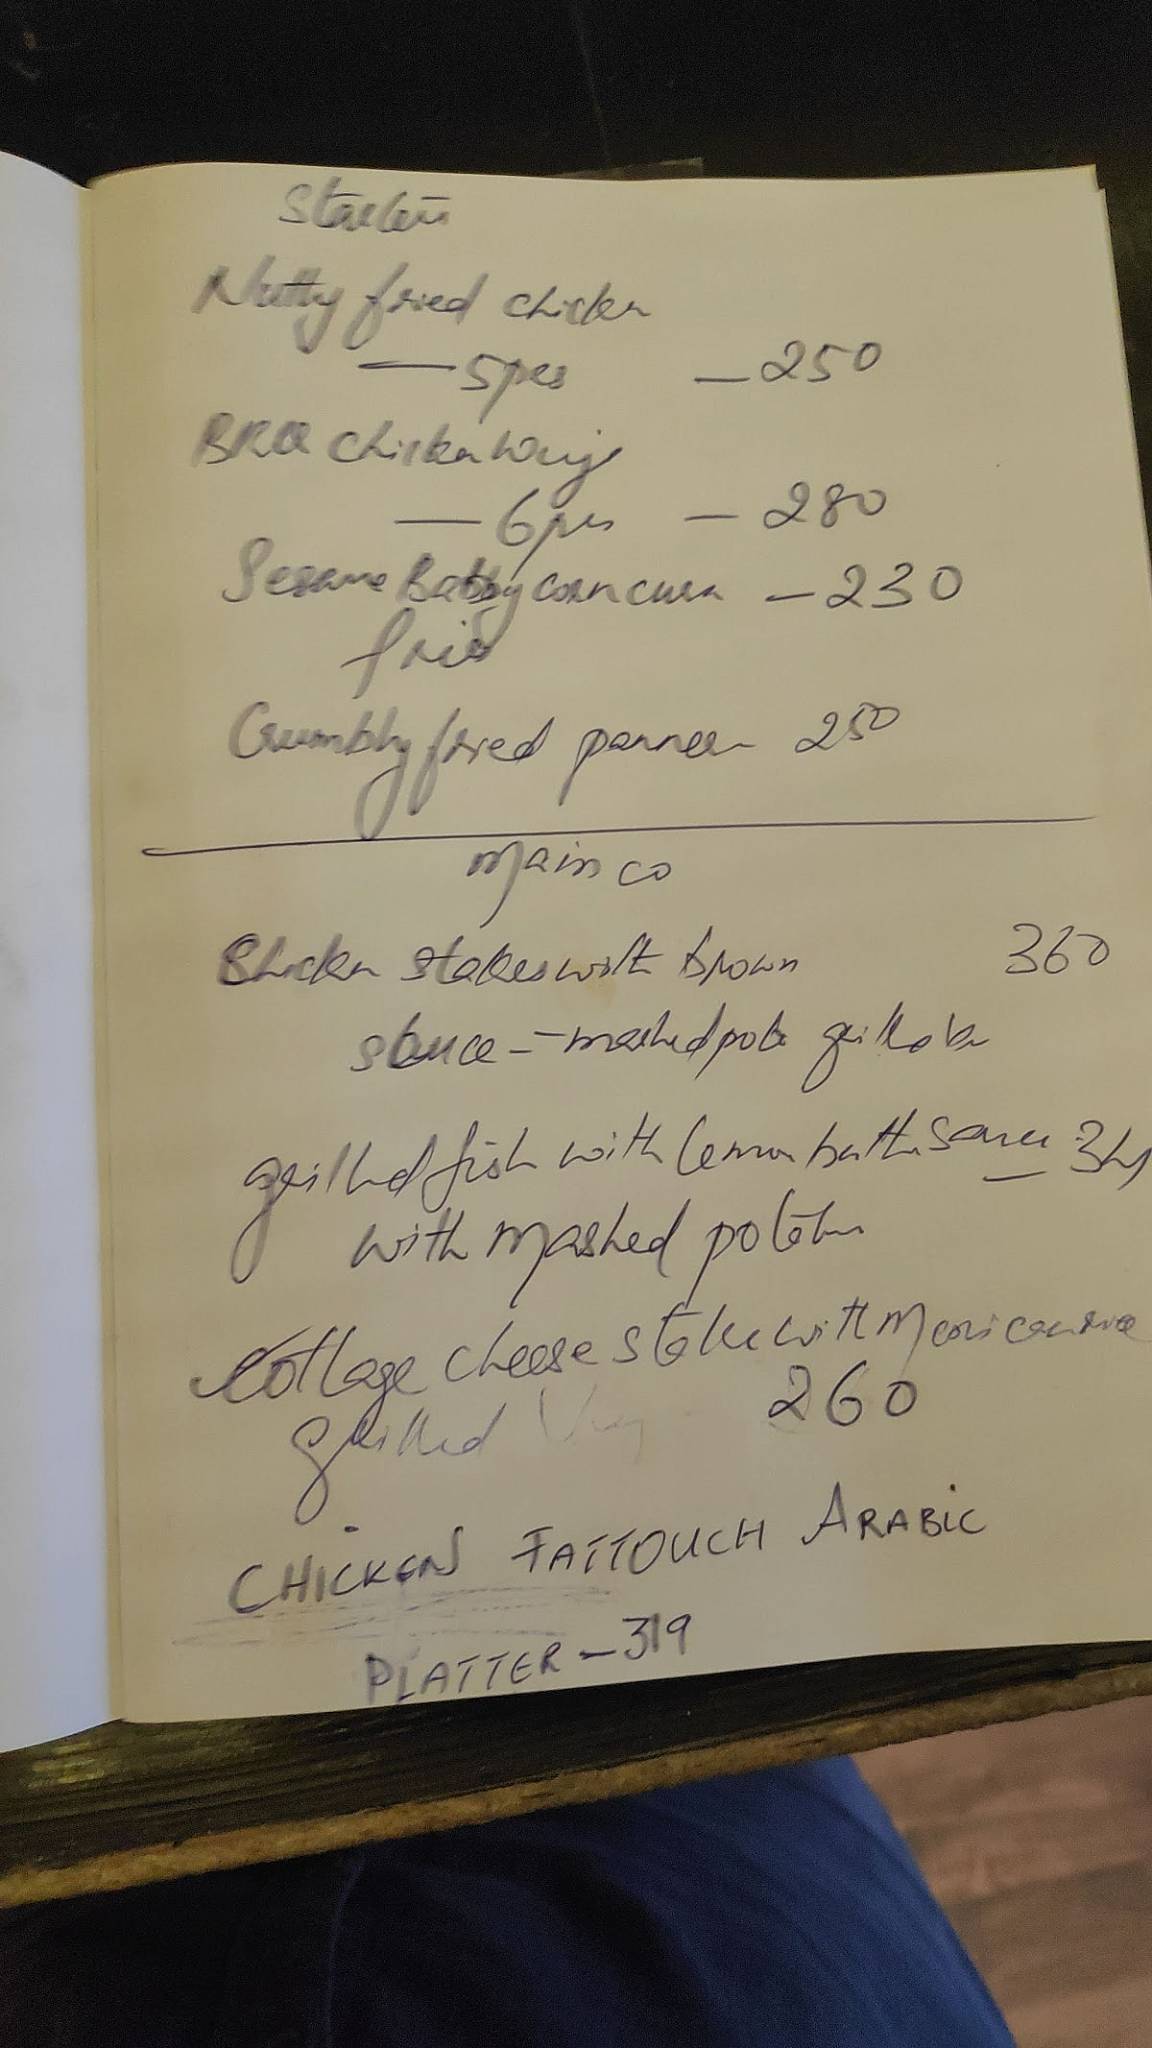 Starters
Nutty fried chicken
— 5pcs — 250
BBQ chicken wings
— 6pcs — 280
Sesame Babby corn — 230
fried
Crumbly fried panneer 250
Main co
Chicken stakes with brown 360
sauce — mashed
grilled fish with lemon butter sauce
with mashed potato
Cottage cheese stake with
grilled Veg 260
CHICKEN FATTOUCH ARABIC
PLATTER — 319